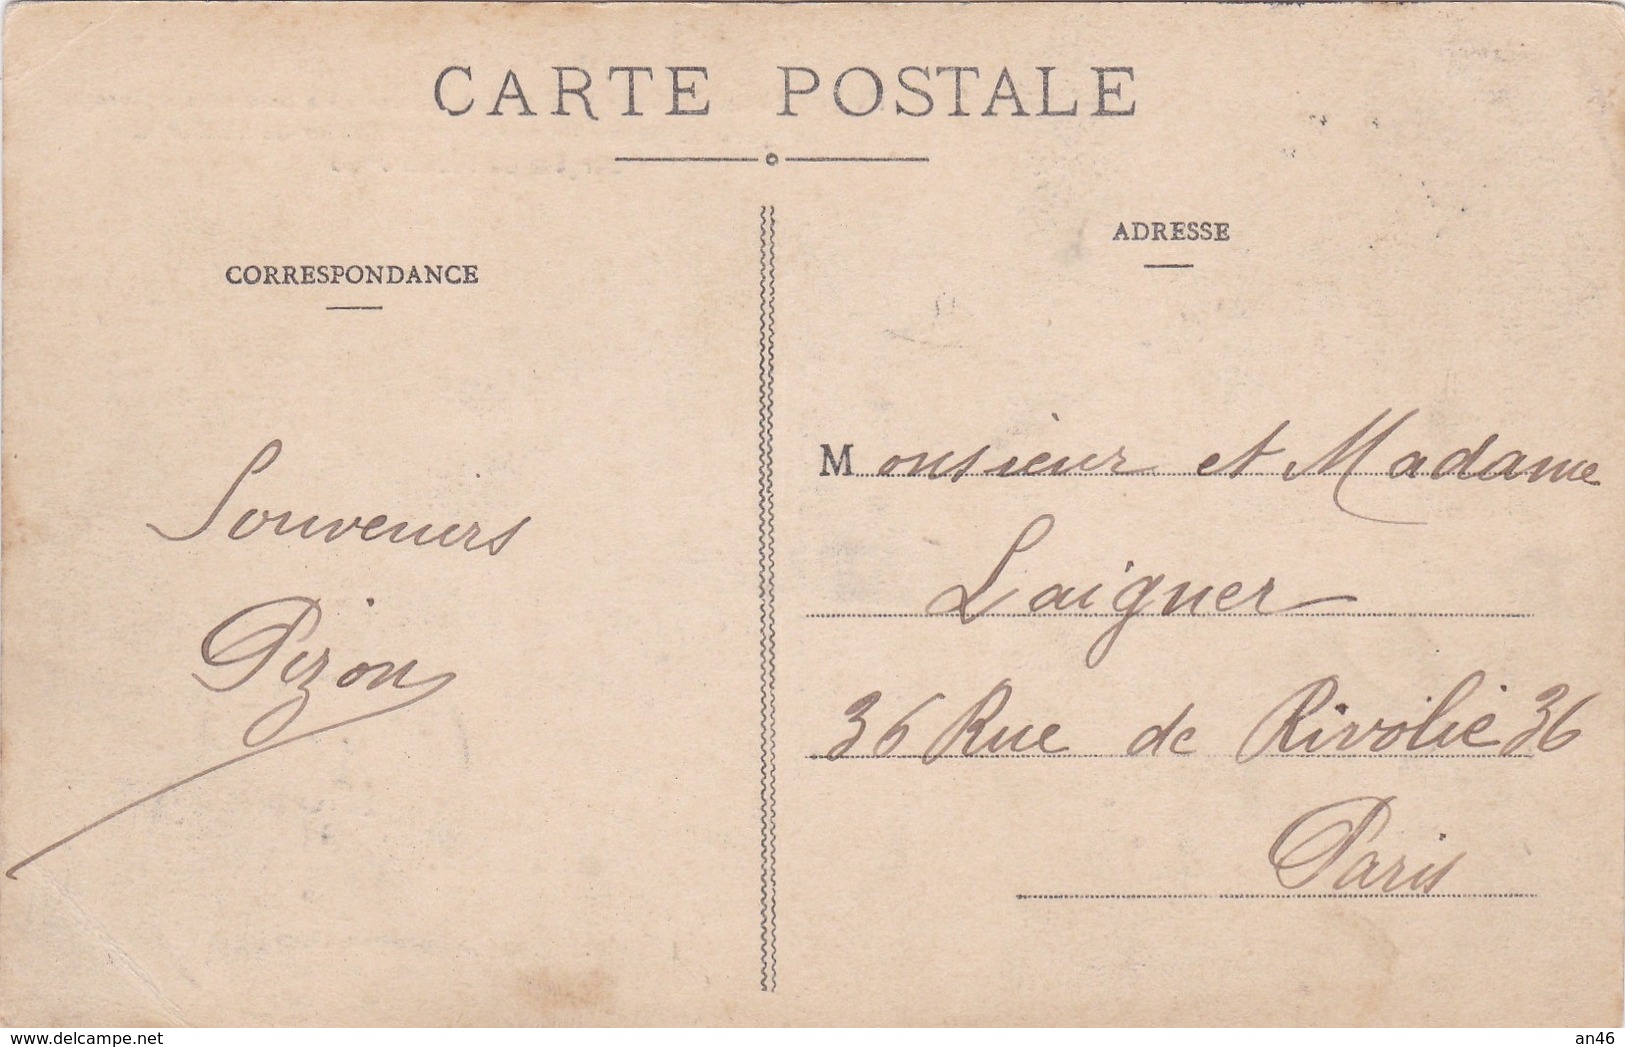 CARTE POSTALE
CORRESPONDANCE
Souveniers
Pizon
ADRESSE
Monsieur et Madame
Laigner
36 Rue de Rivolie 36
Paris
www.delcampe.net
an46